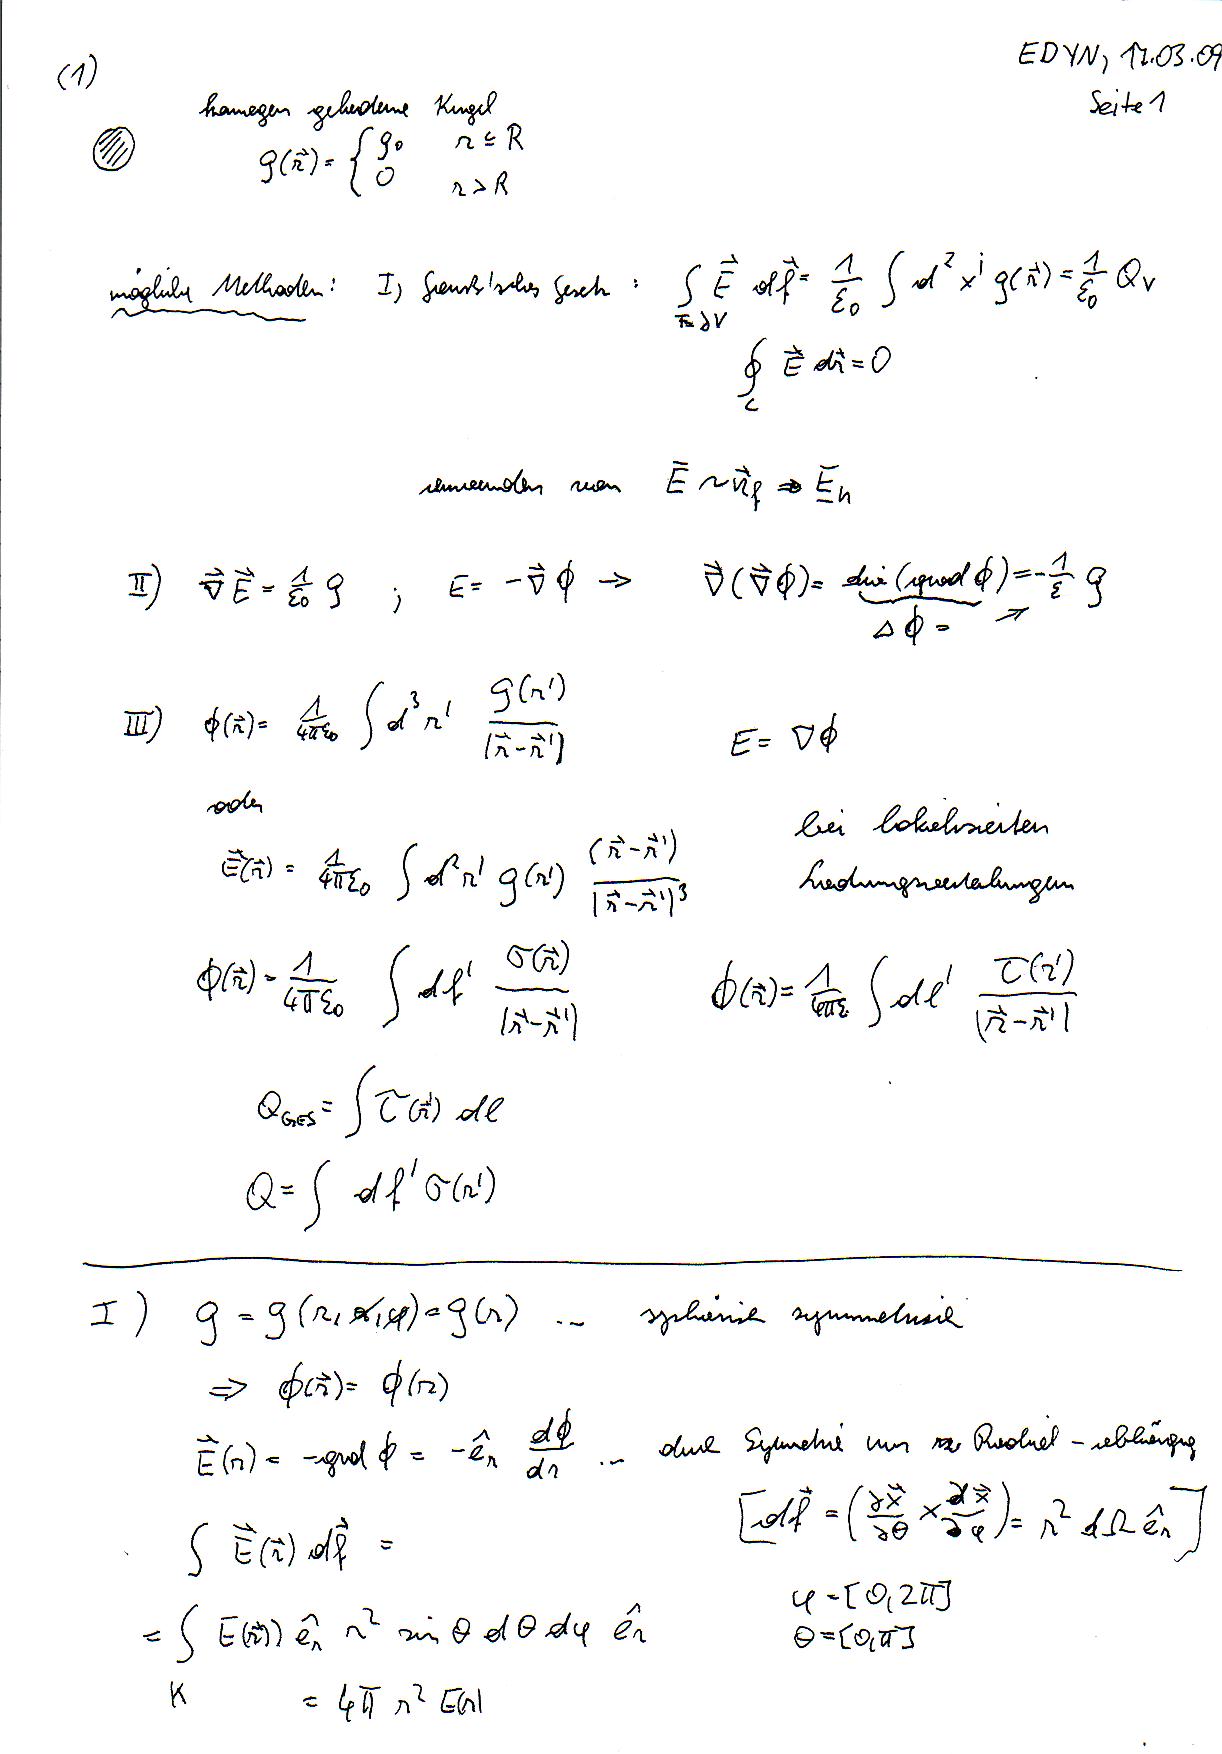 EDYN, 17.03.09
Seite 1
(1)
homogen geladene Kugel
ρ(r⃗) = { ρ₀ r ≤ R
0 r > R
mögliche Methoden: I) Gauß'sches Gesetz : ∫_{F=∂V} E⃗ df⃗ = 1/ε₀ ∫ d²x' ρ(r⃗) = 1/ε₀ Q_V
∮_C E⃗ dr⃗ = 0
von E⃗ ~ n⃗_f ⇒ E_n
II) ∇⃗E⃗ = 1/ε₀ ρ ; E = -∇⃗ϕ → ∇⃗(∇⃗ϕ) = div(grad ϕ) = -1/ε ρ
Δϕ =
III) ϕ(r⃗) = 1/4πε₀ ∫ d³r' ρ(r')/|r⃗-r⃗'| E = ∇ϕ
oder
bei lokalisierten
E⃗(r⃗) = 1/4πε₀ ∫ d²r' ρ(r') (r⃗-r⃗')/|r⃗-r⃗'|³ Ladungsverteilungen
ϕ(r⃗) = 1/4πε₀ ∫ df' σ(r⃗)/|r⃗-r⃗'| ϕ(r⃗) = 1/4πε ∫ dl' τ(r')/|r⃗-r⃗'|
Q_GES = ∫ τ(r⃗') dl
Q = ∫ df' σ(r')
I) ρ = ρ(r, ϑ, φ) = ρ(r) ... sphärisch symmetrisch
⇒ ϕ(r⃗) = ϕ(r)
E⃗(r) = -grad ϕ = -ê_r dϕ/dr ... durch Symmetrie nur Radial-abhängig
[df⃗ = (∂x⃗/∂θ × ∂x⃗/∂φ) = r² dΩ ê_r]
∫ E⃗(r⃗) df⃗ =
φ = [0, 2π]
= ∫_K E(r⃗)) ê_r r² sin θ dθ dφ ê_r θ = [0, π]
= 4π r² E(r)